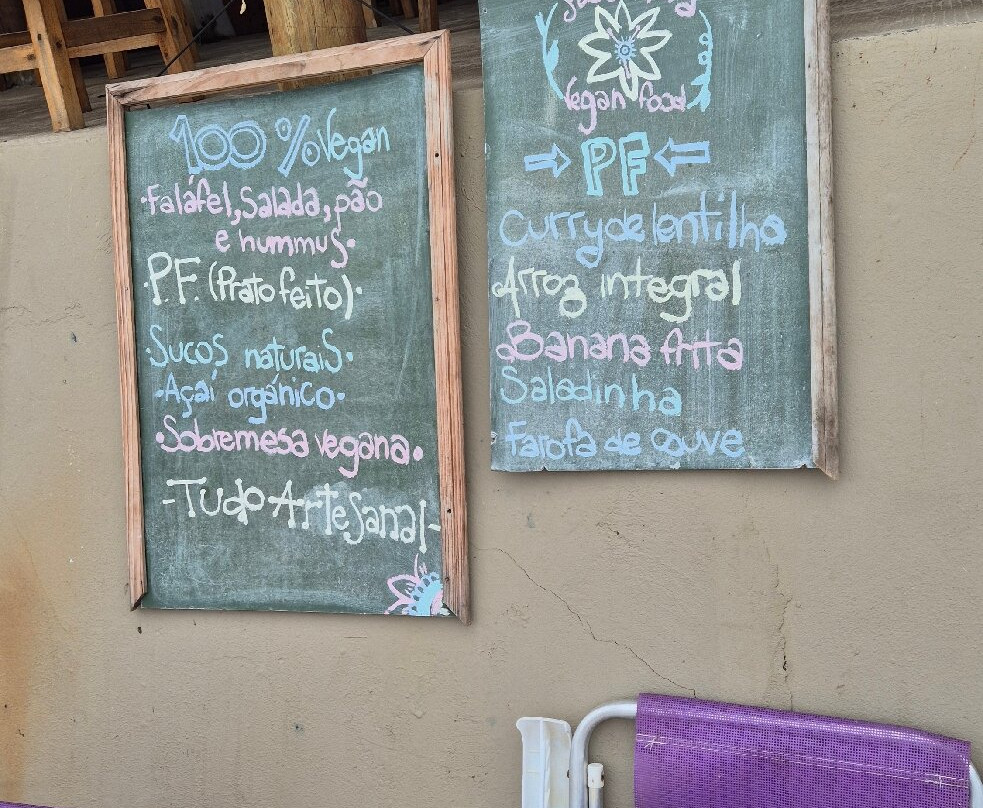 100 % Vegan
• Faláfel, Salada, pão
e hummus•
• P.F. (Prato feito)•
• Sucos naturais•
• Açaí orgánico•
• Sobremesa vegana•
- Tudo Artesanal -
Vegan food
PF
Curry de lentilha
Arroz integral
Banana frita
Saladinha
Farofa de couve